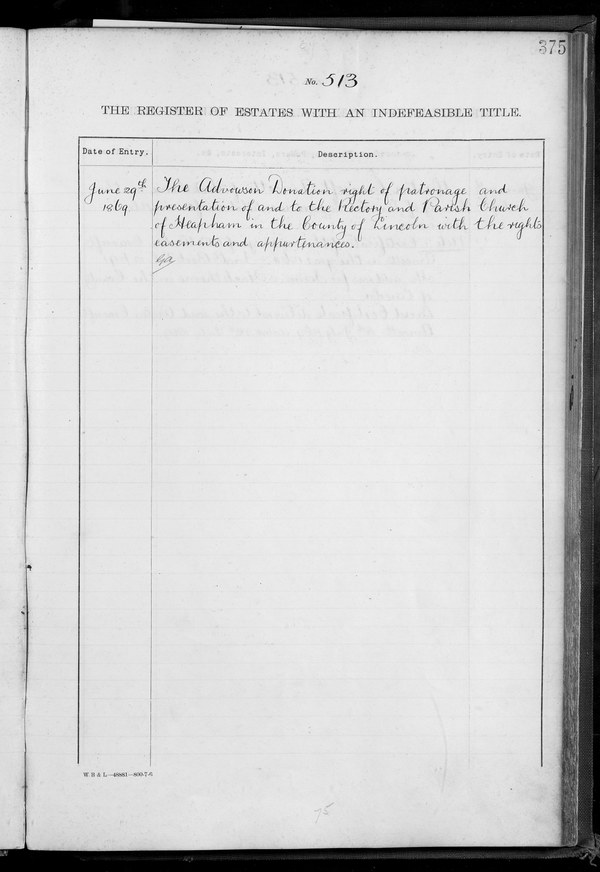 375
No. 513
THE REGISTER OF ESTATES WITH AN INDEFEASIBLE TITLE.
Date of Entry.
Description.
June 29th
1869
The Advowson Donation right of patronage and
presentation of and to the Rectory and Parish Church
of Heapham in the County of Lincoln with the rights
easements and appurtenances.
W B & L—46881—800-7-5
75